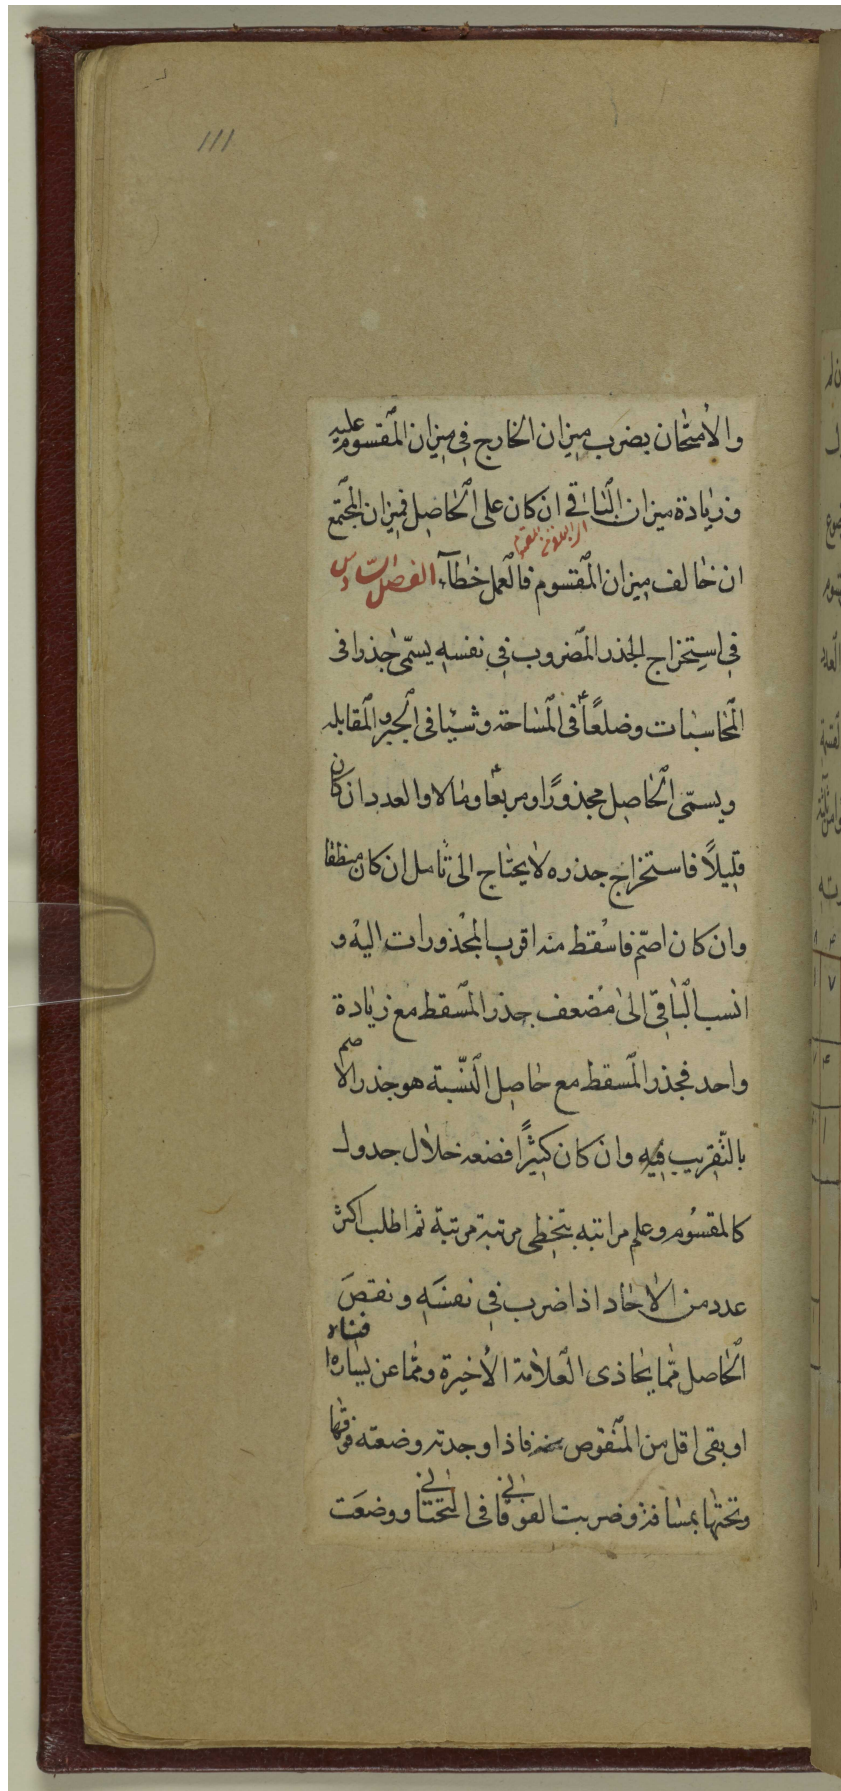 111
والأمتحان بضرب ميزان الخارج في ميزان المقسوم عليه
وزيادة ميزان الباقي ان كان على الحاصل فميزان المجتمع
ان خالف ميزان المقسوم فالعمل خطاء الفصل السادس
في استخراج الجذر المضروب في نفسه يسمى جذرا في
المحاسبات وضلعاً في المساحة وشيئا في الجبر والمقابله
ويسمّى الحاصل مجذورًا ومربعا ومالا والعدد ان كان
قليلاً فاستخراج جذره لا يحتاج الى تامل ان كان منطقا
وان كان اصمّ فاسقط منه اقرب المجذورات اليه و
انسب الباقي الى مضعف جذر المسقط مع زيادة
واحد فجذر المسقط مع حاصل النّسبة هو جذر الاصم
بالتّقريب وان كان كثيرًا فضعه خلال جدول
كالمقسوم وعلم مراتبه بتخطى مرتبة مرتبة ثم اطلب اكثر
عدد من الاحاد اذا ضرب في نفسه ونقص
الحاصل ممّا يحاذى العلامة الأخيرة وممّا عن يساره افناه
او بقى اقل من المنقوص منه فاذا وجدته وضعته فوقها
وتحتها بمسافة وضربت الفوقاني في التحتاني ووضعت